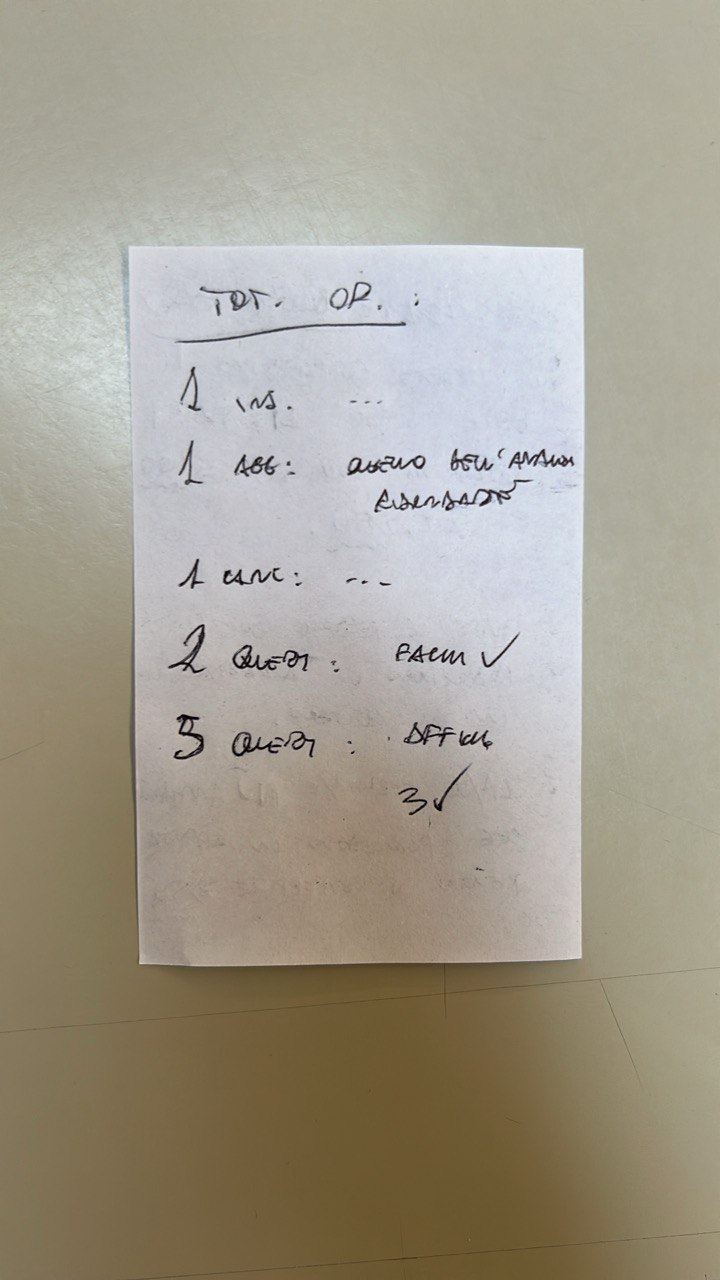 TOT. OP. :
1 INS. ...
1 AGG: QUELLO DELL'ANALISI
RIDONDANZE
1 CANC: ...
2 QUERY: FACILI ✓
5 QUERY: DIFFICILI
3✓